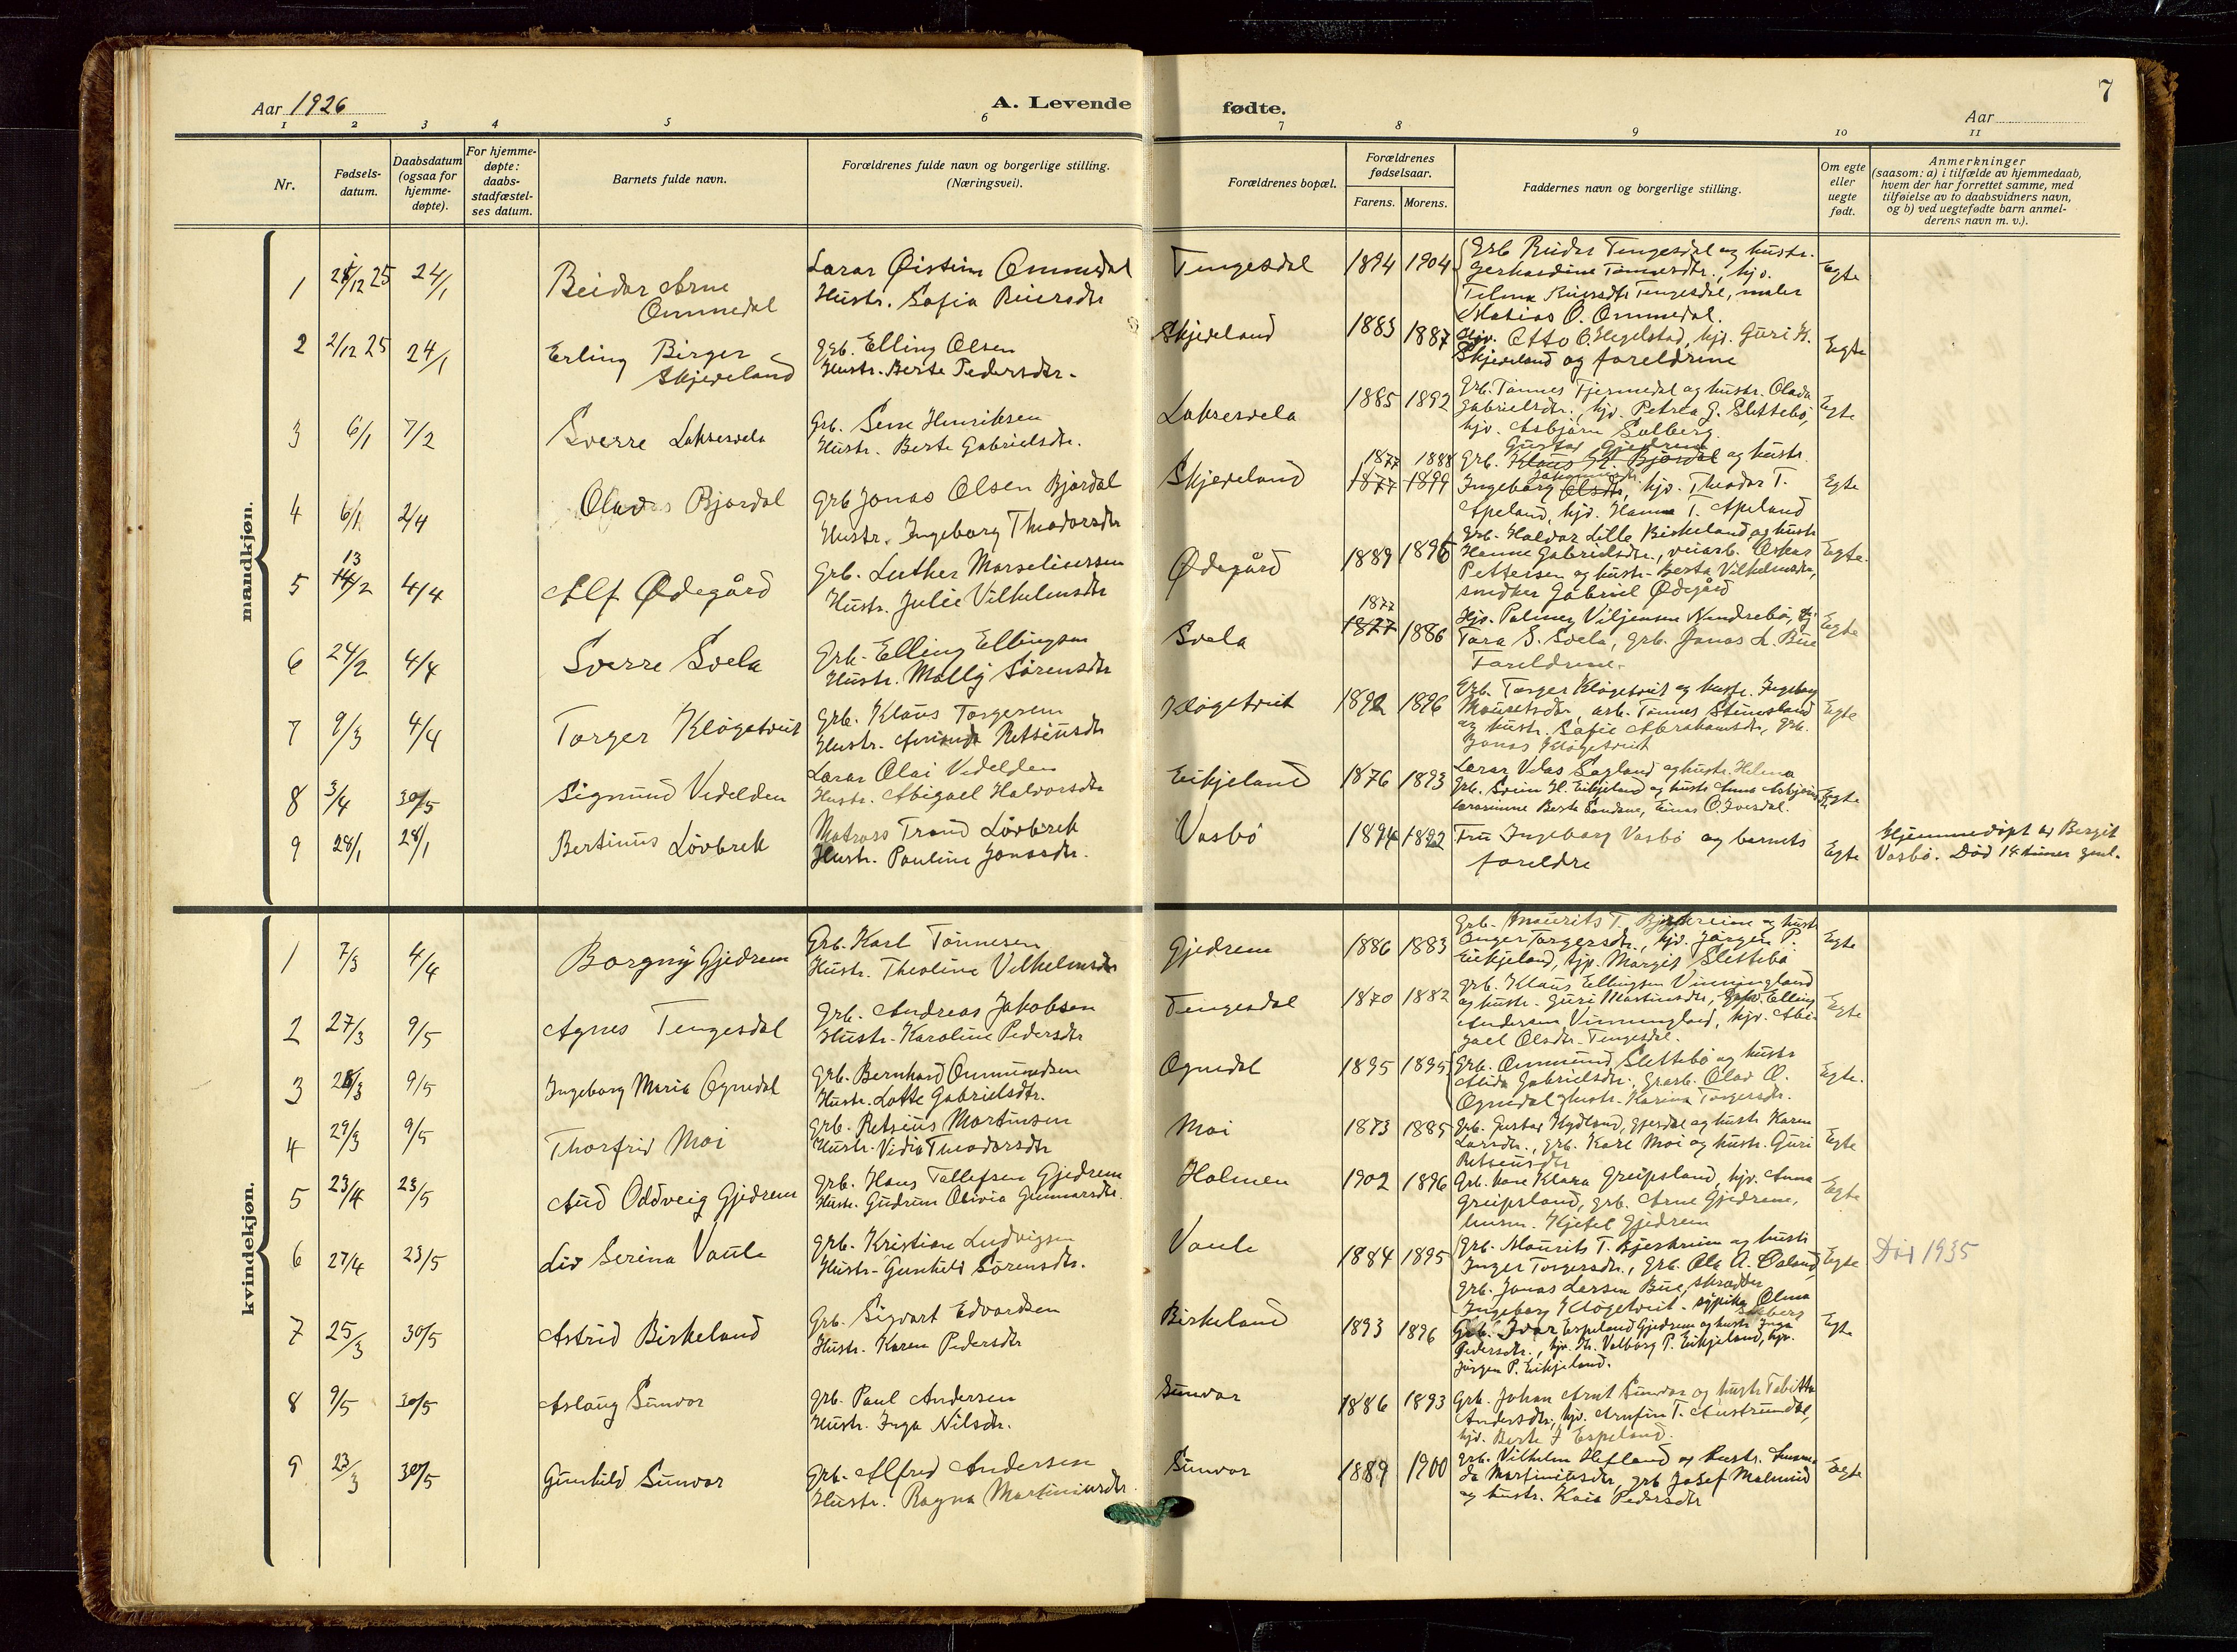 Aar 1926
A. Levende
1 2 3 4 5 6
Nr.
Fødsels-
datum.
Daabsdatum
(ogsaa for
hjemme-
døpte).
For hjemme-
døpte:
daabs-
stadfæstel-
ses datum.
Barnets fulde navn.
Forældrenes fulde navn og borgerlige stilling.
(Næringsvei).
mandkjøn.
1 /12 25 24/1 Reidar Arne
Ommedal
Lærer Øistein Ommedal
Hustr. Sofia Reiersdtr
2 2/12 25 24/1 Erling Birger
Skjeveland
Grb. Elling Olsen
Hustr. Berte Pedersdtr.
3 6/1 7/2 Sverre Laksesvela
Grb. Sem Henriksen
Hustr. Berte Gabrielsdtr.
4 6/1 2/4 Bjordal
Grb Jonas Olsen Bjordal
Hustr. Ingeborg Theodorsdtr
13
5 14/2 4/4 Alf Ødegård
Grb. Luther Marseliussen
Hustr. Julie Vilhelmsdtr
6 24/2 4/4 Sverre Svela
Grb. Elling Ellingsen
Hustr. Mally Sørensdtr
7 9/3 4/4 Torger Kløgetveit
Grb. Klaus Torgersen
Hustr. Retseiusdtr
8 3/4 30/5 Sigmund Vedelden
Lærer Olai Vedelden
Hustr. Abigael Halvorsdtr
9 28/1 28/1 Bertinus Løvbrek
Matros Trond Løvbrek
Hustr. Pauline Jonasdtr.
kvindekjøn.
1 7/3 4/4 Borgny Gjedrem
Grb. Karl Tønnesen
Hustr. Theoline Vilhelmsdtr
2 27/3 9/5 Agnes Tengesdal
Grb. Andreas Jakobsen
Hustr. Karoline Pedersdtr
3 /3 9/5 Ingeborg Marie Ognedal
Grb. Bernhard Ommundsen
Hustr. Lotte Gabrielsdtr.
4 29/3 9/5 Thorfrid Moi
Grb. Retseius Martinsen
Hustr. Vidia Theodorsdtr
5 23/4 23/5 Aud Oddveig Gjedrem
Grb. Hans Tollefsen Gjedrem
Hustr. Gudrun Olivia Gunnarsdtr.
6 27/4 23/5 Liv Serina Vaule
Grb. Kristian Ludvigsen
Hustr. Gunhild Sørensdtr.
7 25/3 30/5 Astrid Birkeland
Grb. Sigvart Edvardsen
Hustr. Karen Pedersdtr
8 9/5 30/5 Aslaug Sunvor
Grb. Paul Andersen
Hustr. Inga Nilsdtr.
9 23/3 30/5 Gunhild Sunvor
Grb. Alfred Andersen
Hustr. Ragna Martiniusdtr.
7
fødte.
Aar
7 8 9 10 11
Forældrenes bopæl.
Forældrenes
fødselsaar.
Farens. Morens.
Faddernes navn og borgerlige stilling.
Om egte
eller
uegte
født.
Anmerkninger
(saasom: a) i tilfælde av hjemmedaab,
hvem der har forrettet samme, med
tilføielse av to daabsvidners navn,
og b) ved uegtefødte barn anmel-
derens navn m. v.).
Tengesdal 1894 1904 Egte
Grb Reidar Tengesdal og hustr.
Gerhardine Tønnesdtr., hjv.
Telma Reiersdtr Tengesdal, maler
Matias O. Ommedal.
Skjeveland 1883 1887 Egte
Hjv. Otto O. Hegelstad, hjv. Guri K.
Skjeveland og foreldrene
Laksesvela 1885 1892 Egte
Grb. Tønnes Tjermedal og hustr. Olava
Gabrielsdtr., hjv. Petrea G. Slettebø,
hjv. Asbjørn Solberg.
1877 1888
Skjeveland 1877 1899 Egte
Gustav Gjedrem
Grb. Klaus K. Bjordal og hustr.
Ingeborg Olsdtr, hjv. Theodor T.
Apeland, hjv. Hanna T. Apeland
Ødegård 1889 1896 Egte.
Grb. Halvor Lille Birkeland og hustr
Hanne Gabrielsdtr., veiarb. Oskar
Pettersen og hustr. Berta Vilhelmsdtr,
snedker Gabriel Ødegård
1877
Svela 1877 1886 Egte
Hjv. Palmer Viljensen Nandrebø, hj
Tora S. Svela, grb. Jonas L. Bue
Foreldrene.
Kløgetveit 1892 1896 Egte
Grb. Torger Kløgetveit og hustr. Ingeborg
Mauritsdtr, arb. Tønnes Steinsland
og hustr. Sofie Abrahamsdtr, grb.
Jonas Kløgetveit
Eikjeland 1876 1893 Egte
Lærer Vilas Sagland og hustr. Helena
Grb. Svein H. Eikjeland og hustr Anna Asbjørns
lærerinne Berta Sandene, Einar O. Ivesdal.
Vasbø 1894 1892 Egte
Fru Ingeborg Vasbø og barnets
foreldre
Hjemmedøpt av Bergit
Vasbø. Død 14 timer gml.
Gjedrem 1886 1883 Egte
Grb. Maurits T. Bjerkreim og hustr
Inger Torgersdtr., hjv. Jørgen P.
Eikjeland, hjv. Margit Slettebø
Tengesdal 1870 1882 Egte
Grb. Klaus Ellingsen Vinningland
og hustr. Guri Martinsdtr, Elling
Andersen Vinningland, hjv. Abi-
gael Olsdtr. Tengesdal.
Ognedal 1895 1895 Egte.
Grb. Ommund Slettebø og hustr
Alida Gabrielsdtr., Olav O.
Ognedal og hustr. Karina Torgersdtr.
Moi 1873 1885 Egte
Grb. Gustav Nydland, Gjesdal og hustr Karen
Larsdtr., grb. Karl Moi og hustr. Guri
Retseiusdtr
Holmen 1902 1896 Egte
Grb. kone Klara Greipsland, hjv. Anna
Greipsland, grb. Arne Gjedrem,
husm. Kjetel Gjedrem
Vaule 1884 1895 Egte Død 1935
Grb. Maurits T. Bjerkreim og hustr
Inger Torgersdtr., grb. Ole A. Ovland,
grb. Jonas Larsen Bue, skrædder
Ingeborg Kløgetveit. sypike Olina
Birkeland 1893 1896 Egte
Grb. Ivar Espeland Gjedrem og hustr Inga
Pedersdtr., hjv. Kr. Valborg P. Eikjeland, hjv.
Jørgen P. Eikjeland.
Sunvor 1886 1893
Grb. Johan Arnt Sunvor og hustr Tabitta
Andersdtr., hjv. Arnfin T. Austrumdal,
hjv. Berte J Espeland.
Sunvor 1889 1900 Egte
Grb. Vilhelm Hetland og hustr.
Martiniusdtr, grb Josef Malmind
og hustr. Kaia Pedersdtr